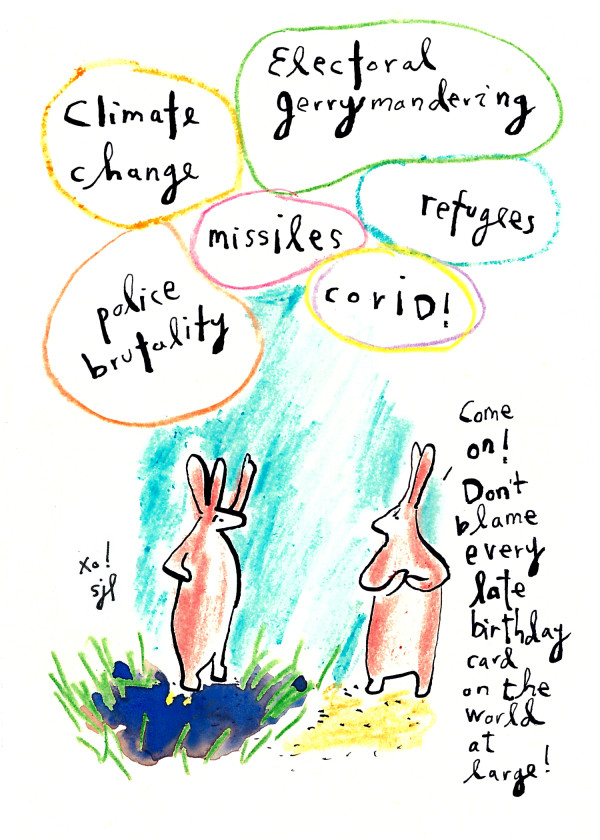 Electoral
gerrymandering
Climate
change
refugees
missiles
covid!
police
brutality
Come
on!
Don't
blame
every
late
birthday
card
on the
world
at
large!
xo!
sjl